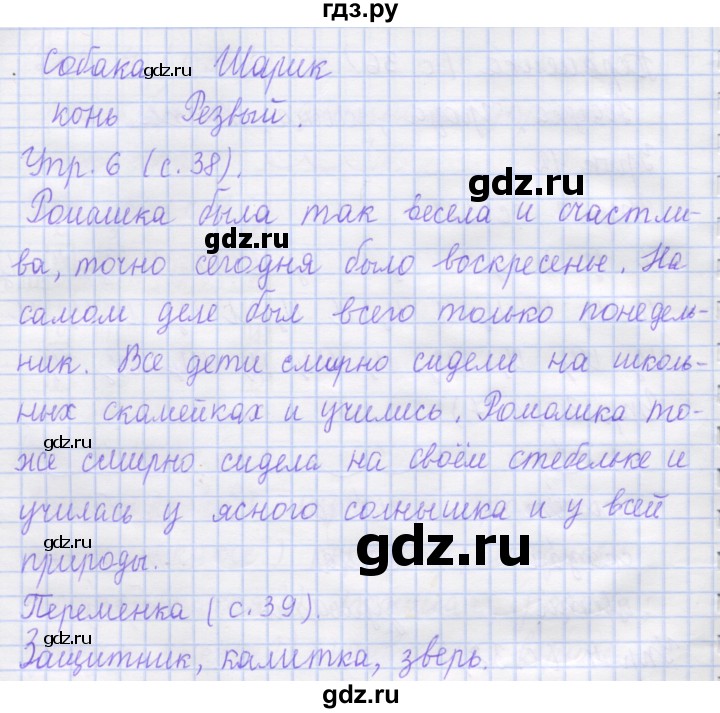 гдз.ру
Собака Шарик
gdz.ru
конь Резвый.
Упр. 6 (с. 38).
gdz.ru
Ромашка была так весела и счастли-
gdz.ru
ва, точно сегодня было воскресенье. На
самом деле был всего только понедель-
gdz.ru
ник. Все дети смирно сидели на школь-
ных скамейках и учились. Ромашка то-
gdz.ru
же смирно сидела на своём стебельке и
училась у ясного солнышка и у всей
gdz.ru
природы.
Переменка (с. 39).
gdz.ru
Защитник, калитка, зверь.
gdz.ru